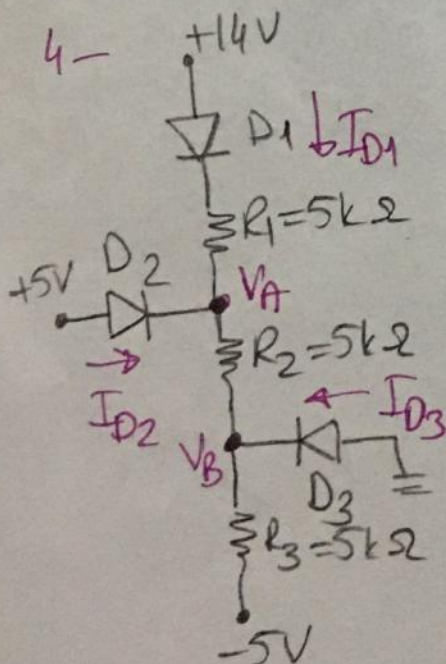 4-
+14V
D1 ↓ID1
R1=5kΩ
D2
+5V
VA
R2=5kΩ
ID2
ID3
VB
D3
R3=5kΩ
-5V